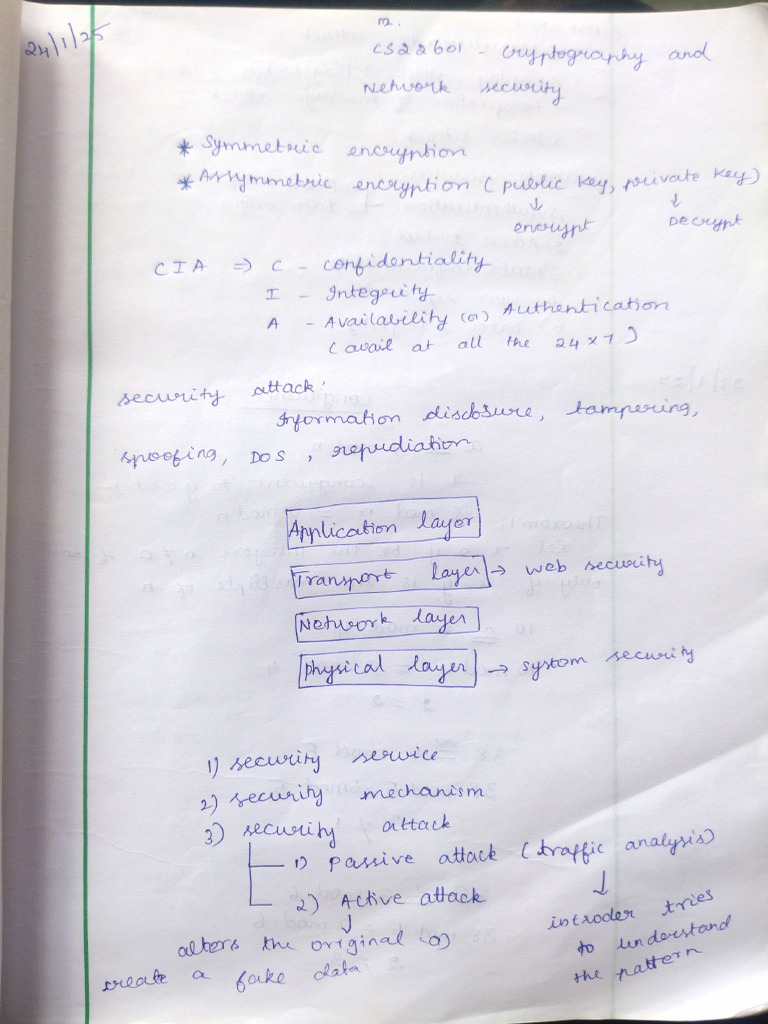 24/1/25
CS22601 - Cryptography and
Network security
* Symmetric encryption
* Assymmetric encryption (public key, private key)
↓ ↓
encrypt Decrypt
CIA ⇒ C - confidentiality
I - Integrity
A - Availability (or) Authentication
(avail at all the 24x7)
security attack:
Information disclosure, tampering,
spoofing, DOS, repudiation
Application layer
Transport layer → web security
Network layer
physical layer → system security
1) security service
2) security mechanism
3) security attack
1) Passive attack (traffic analysis)
2) Active attack
↓ ↓
alters the original (or)
create a fake data
introder tries
to understand
the pattern